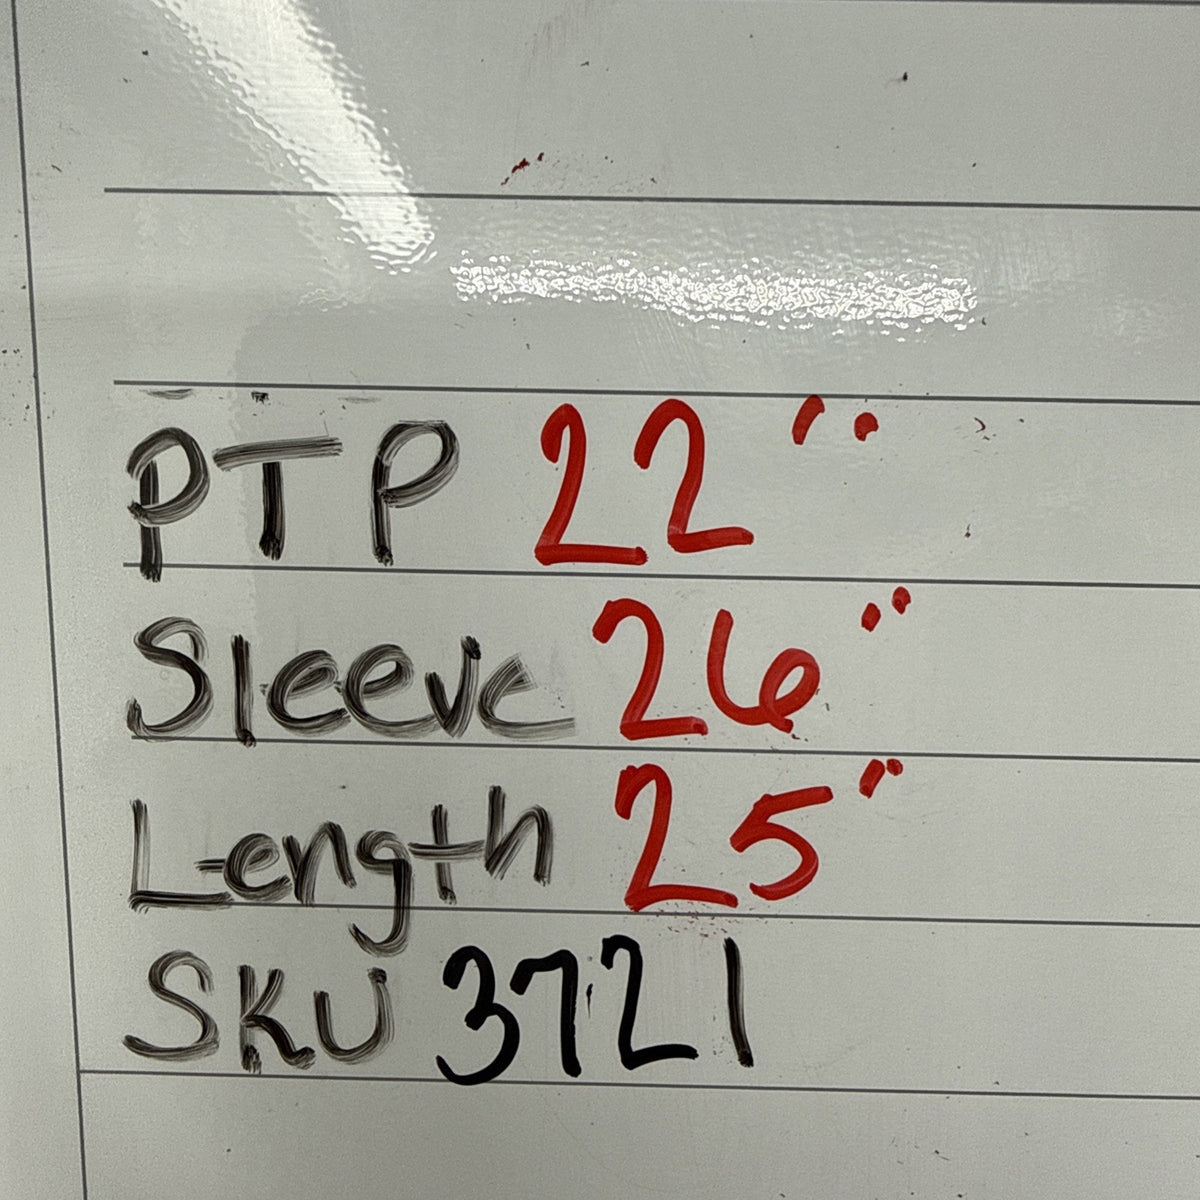 PTP 22"
Sleeve 26"
Length 25"
SKU 3721